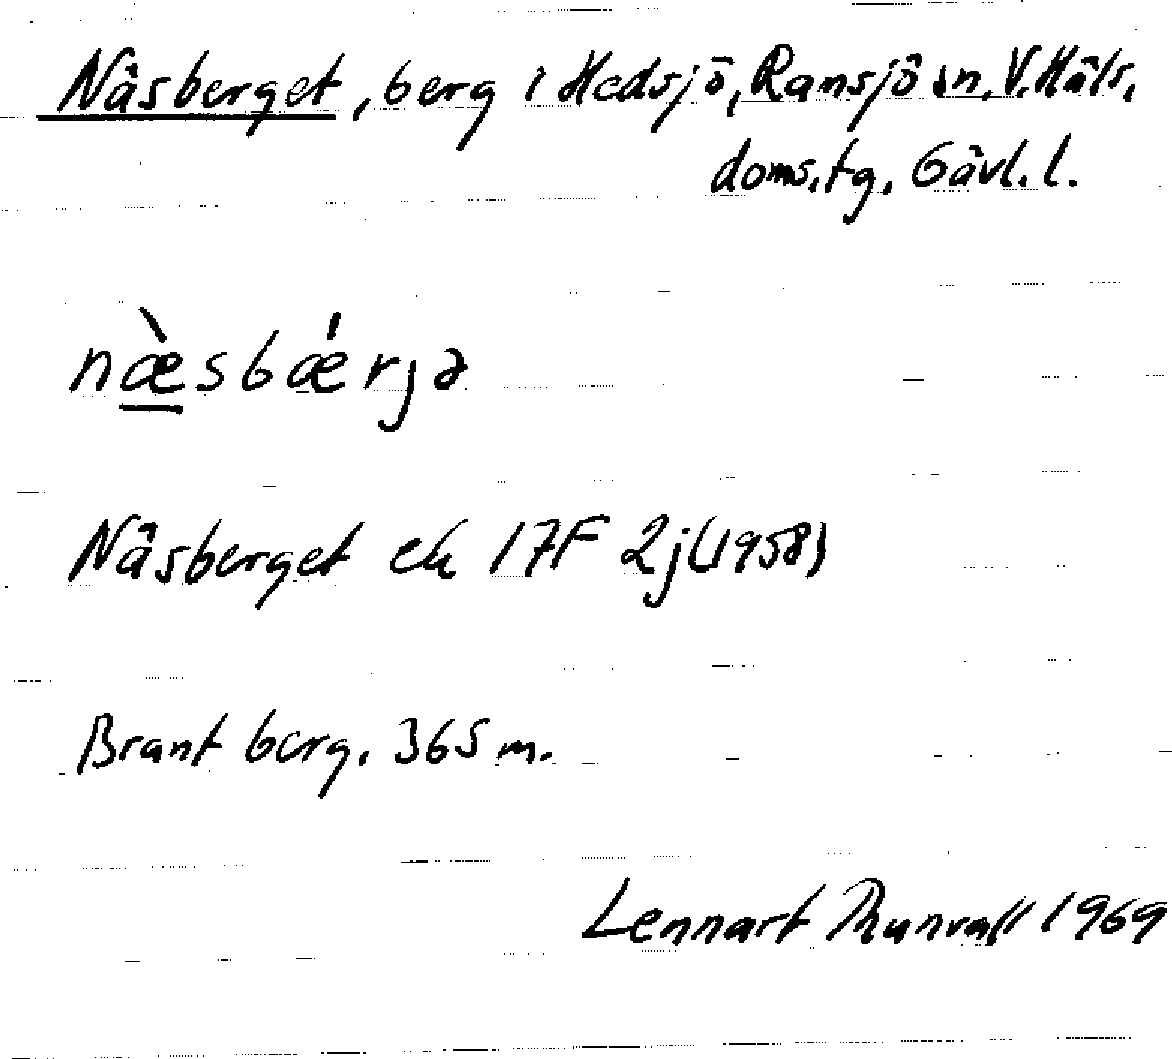 Näsberget, berg i Hedsjö, Ransjö sn. V. Häls.
doms. tg. Gävl. l.
næ̀sbǽrjə
Näsberget ek 17F 2j (1958)
Brant berg. 365 m.
Lennart Thunvall 1969